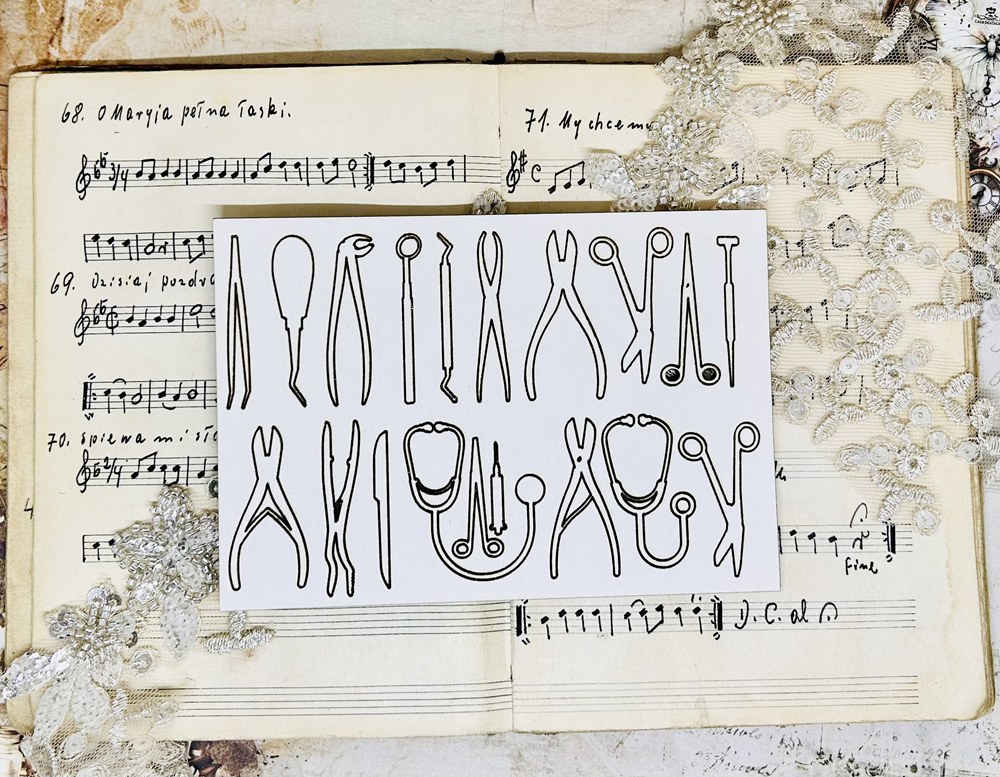 68. O Maryja pełna łaski.
3/4
69. Dzisiaj pozdr
70. Śpiewa mi sło
2/4
4
71. My chcemy
C
Fine
D. C. al